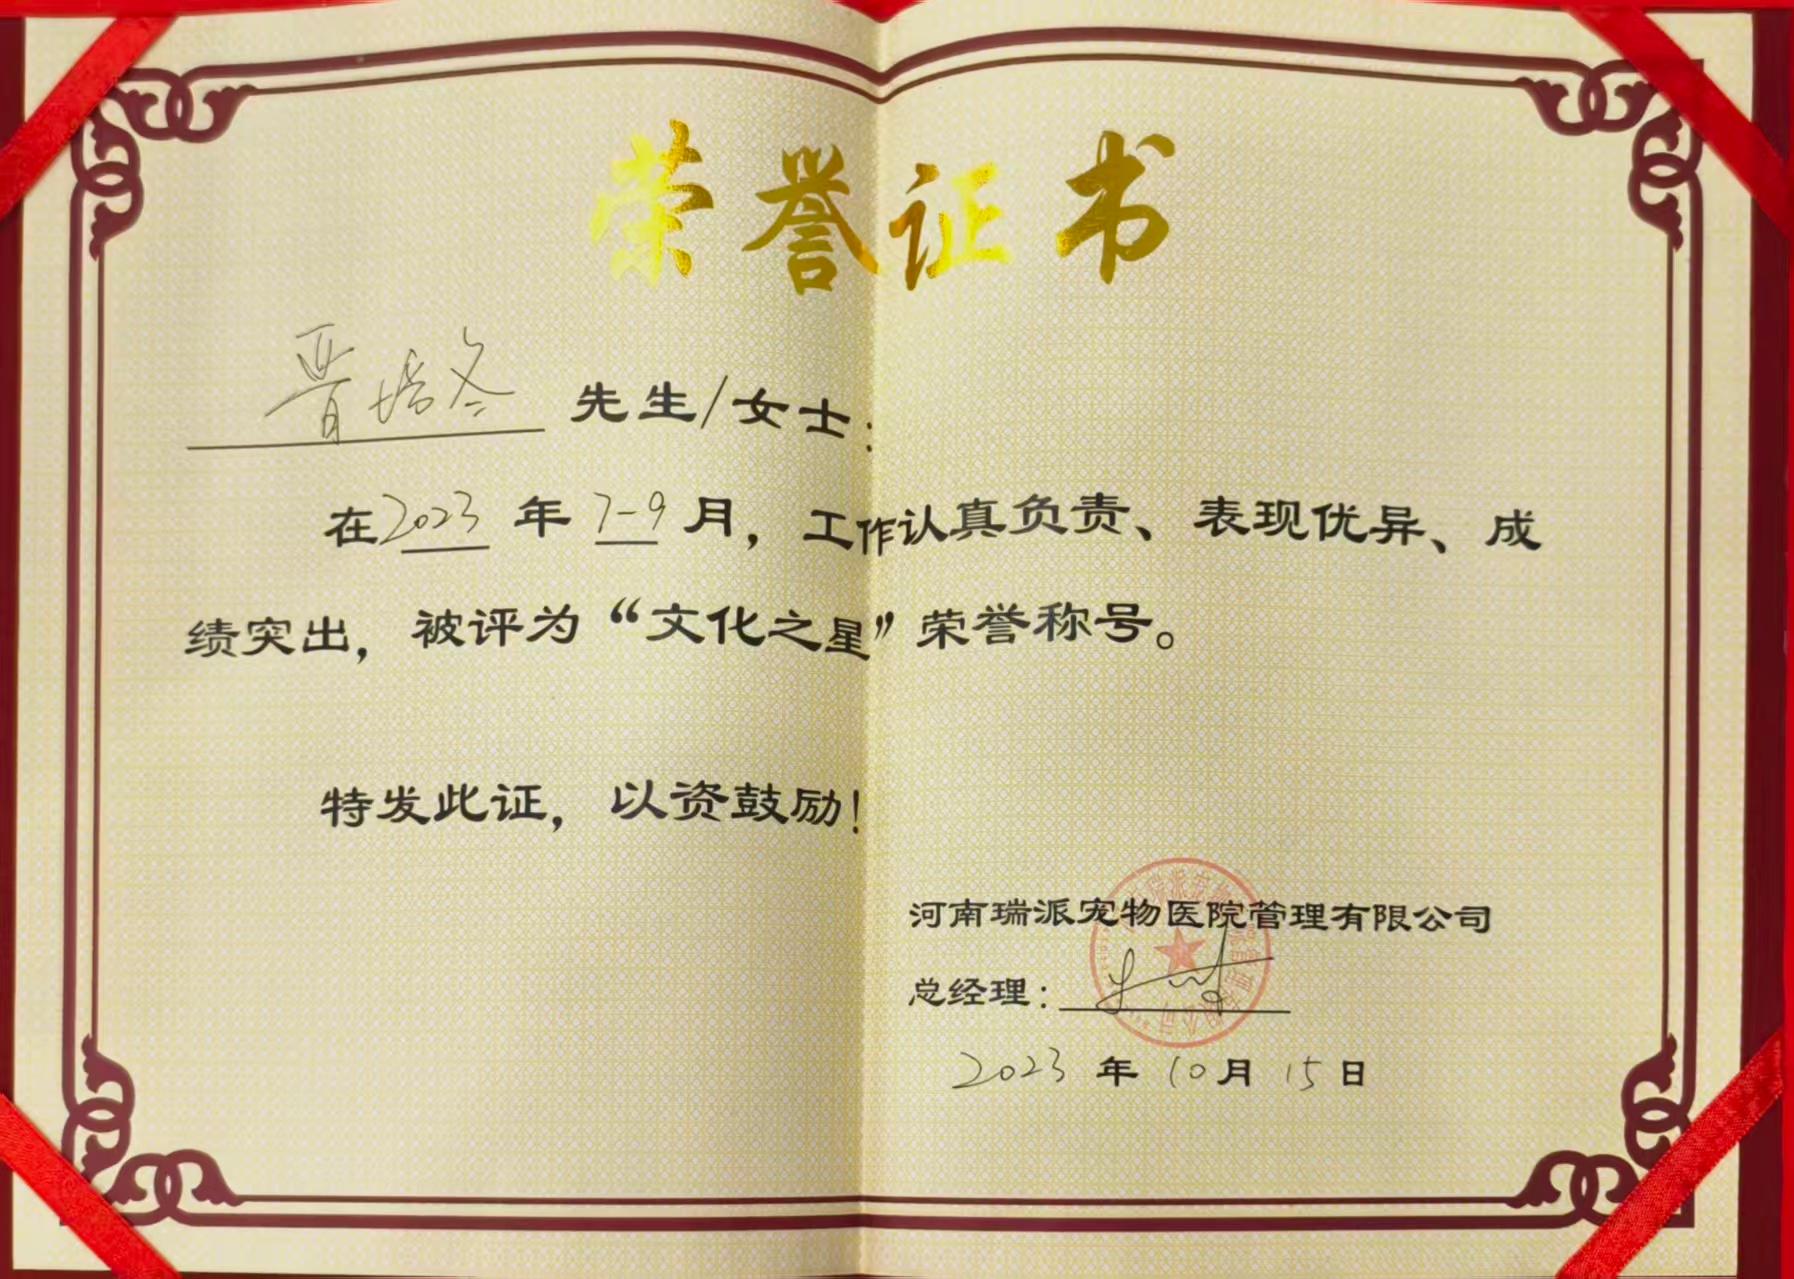 荣誉证书
晋培冬 先生/女士：
在2023年7-9月，工作认真负责、表现优异、成
绩突出，被评为“文化之星”荣誉称号。
特发此证，以资鼓励！
河南瑞派宠物医院管理有限公司
总经理：
2023年10月15日